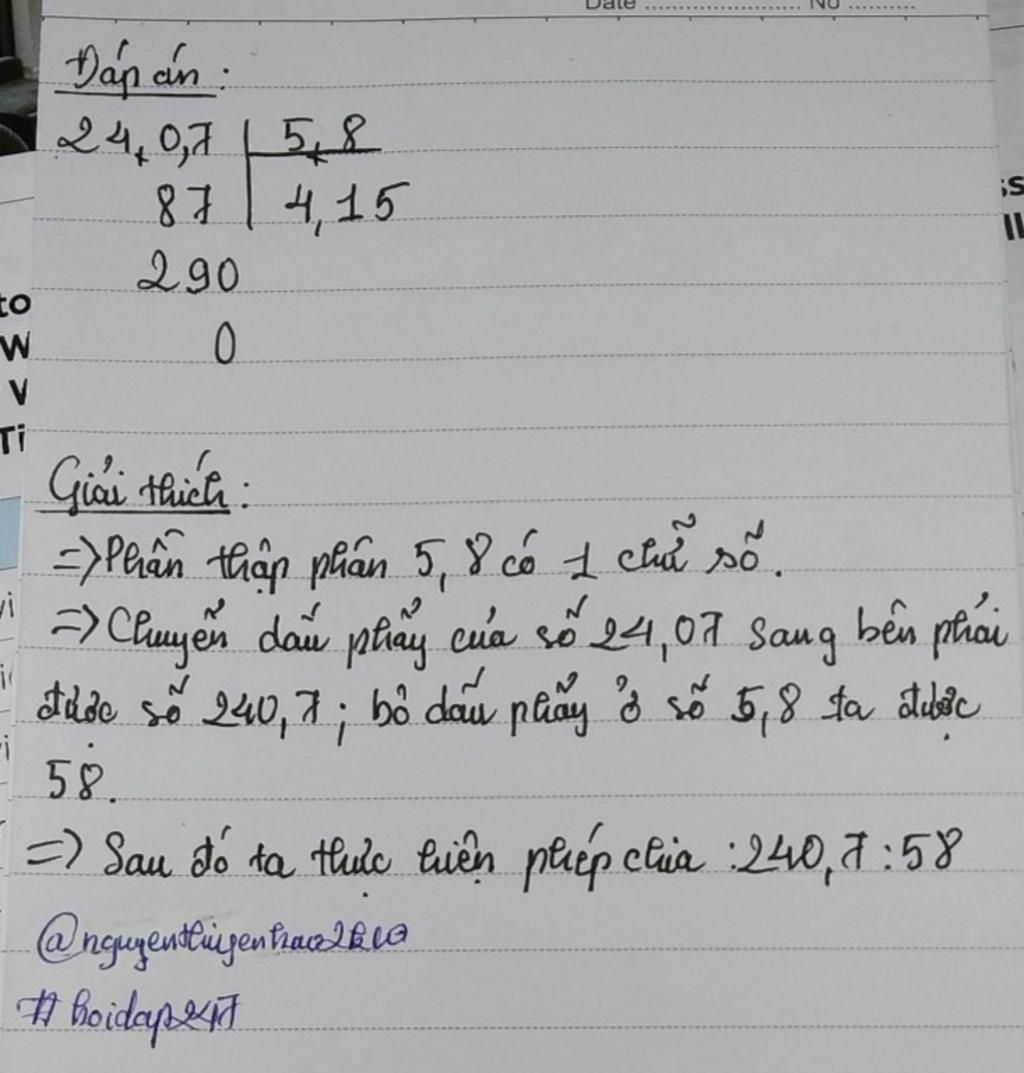 Date ........................ No ..........
Đáp án :
24,0,7 | 5,8
87 | 4,15
290
0
Giải thích :
=> Phần thập phân 5,8 có 1 chữ số.
=> Chuyển dấu phẩy của số 24,07 sang bên phải
được số 240,7 ; bỏ dấu phẩy ở số 5,8 ta được
58.
=> Sau đó ta thực hiện phép chia : 240,7 : 58
# hoidap247
to
W
V
Ti